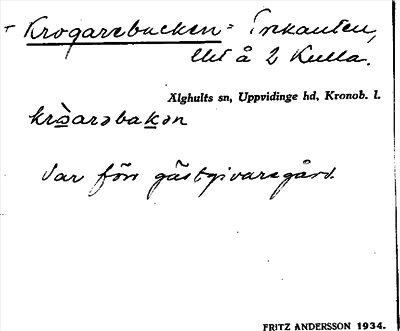 + Krogarebacken = Trekanten,
litt å 2 Kulla.
Älghults sn, Uppvidinge hd, Kronob. l.
kròarəbakən
Var förr gästgivaregård.
FRITZ ANDERSSON 1934.